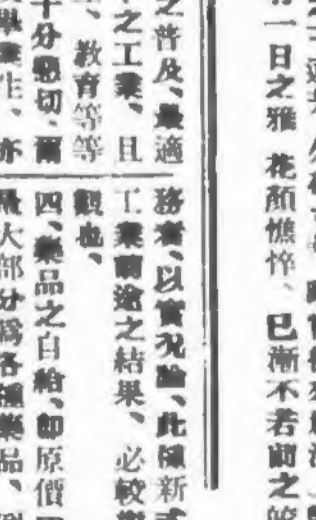 一日之雅 花顏憔悴、已漸不若前之
之普及、最適
之工業、且
、敎育等等
十分懇切、爾
畢業生、亦
務者、以實况論、此種新
工業前途之結果、必較
觀也、
四、藥品之自給、卽原價
大部分爲各種藥品、